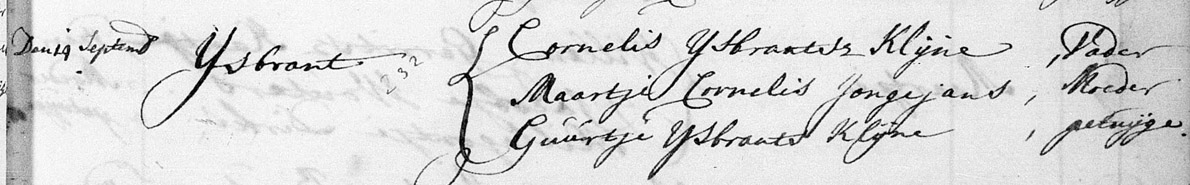 Den 19 Septemb Ysbrant 232 { Cornelis Ysbrantsz Klyne , Vader
Maartje Cornelis Jongejans , Moeder
Guurtje Ysbrants Klyne , getuyge.